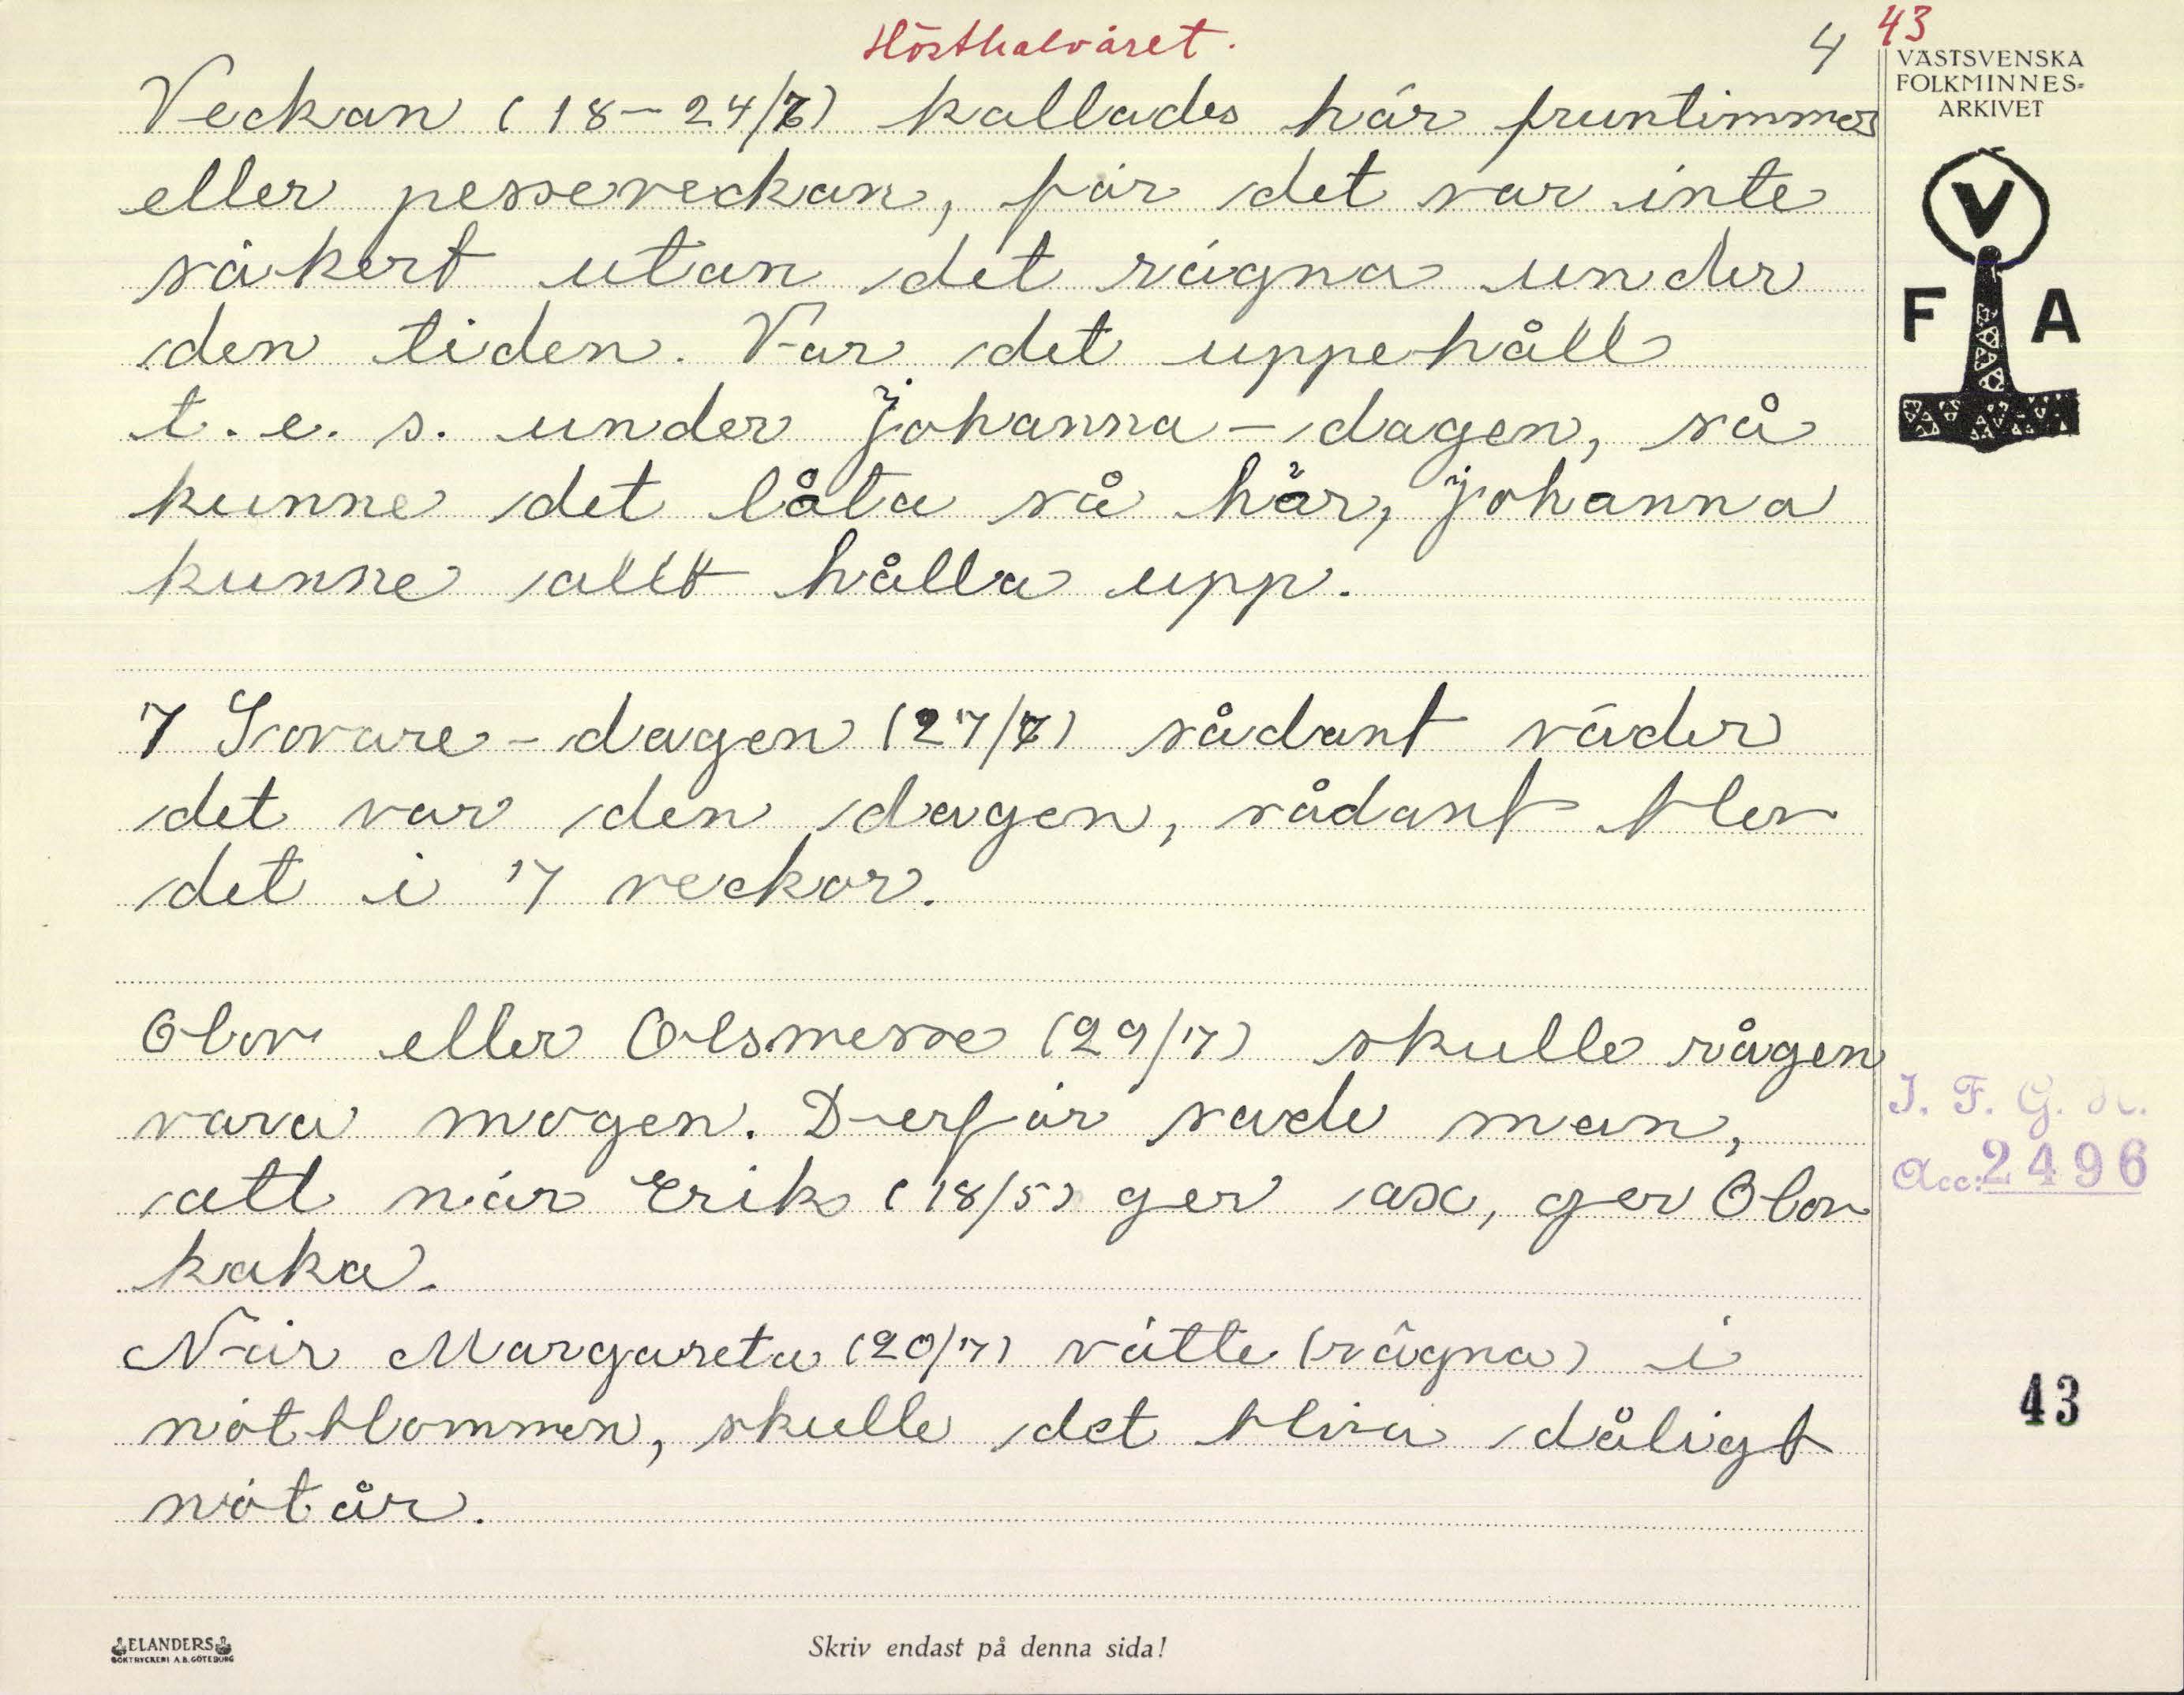 Hösthalvåret.
4 43
VÄSTSVENSKA
FOLKMINNES-
ARKIVET
V
F A
Veckan (18-24/7) kallades här fruntimmer
eller pesseveckan, för det var inte
säkert utan det rägna under
den tiden. Var det uppehåll
t. e. s. under Johanna-dagen, så
kunne det låta så här, Johanna
kunne allt hålla upp.
7 Sovare-dagen (27/7) sådant väder
det var den dagen, sådant blev
det i 7 veckor.
Olov eller Olsmesse (29/7) skulle rågen
vara mogen. Derför sade man,
att när Erik (18/5) ger ax, ger Olov
kaka.
När Margareta (20/7) vätte (rägna) i
nötblommen, skulle det bliva dåligt
nötår.
I. F. G. H.
Acc: 2496
43
ELANDERS
BOKTRYCKERI A.B. GÖTEBORG
Skriv endast på denna sida!